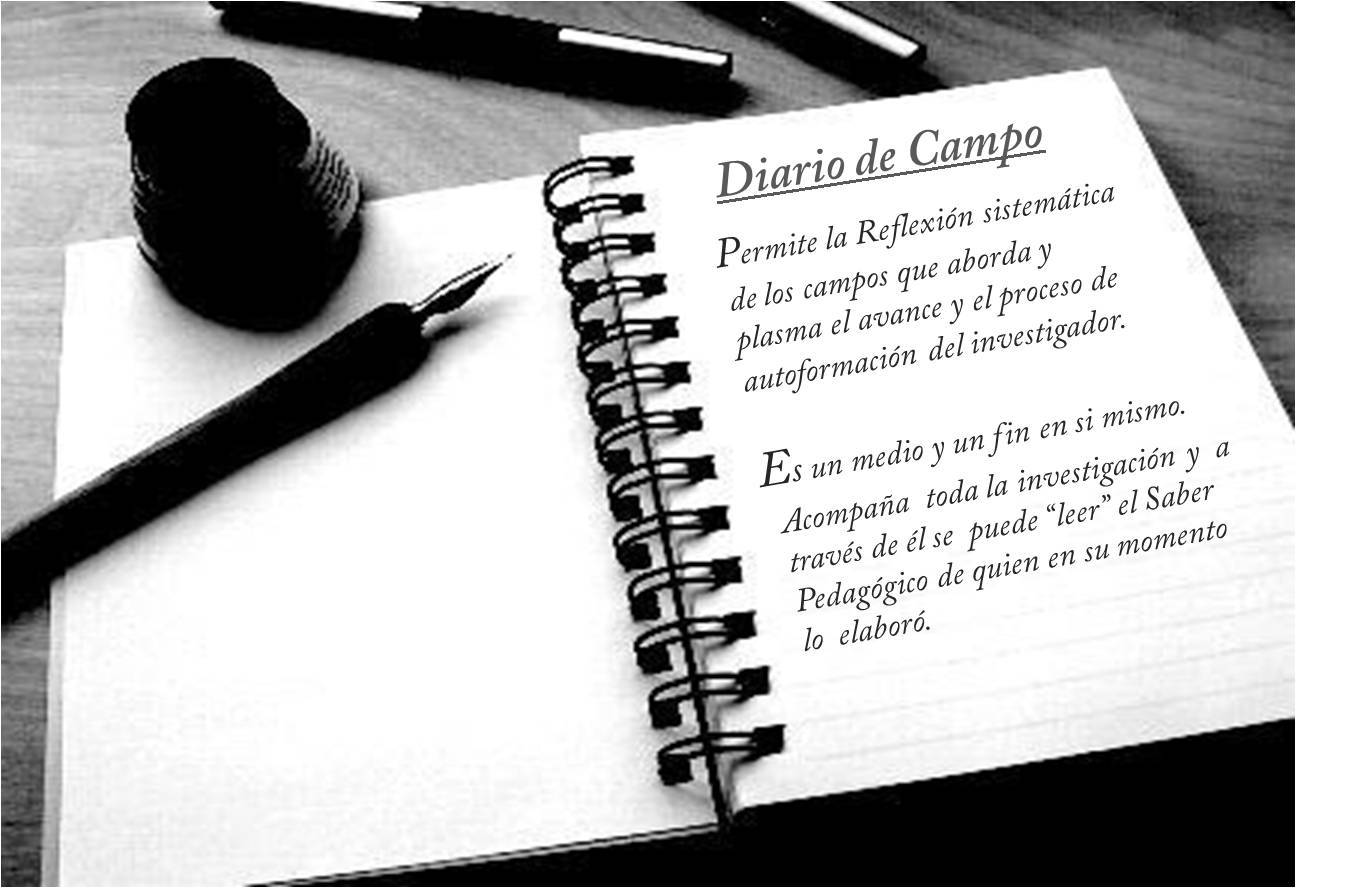 Diario de Campo
Permite la Reflexión sistemática
de los campos que aborda y
plasma el avance y el proceso de
autoformación del investigador.
Es un medio y un fin en si mismo.
Acompaña toda la investigación y a
través de él se puede “leer” el Saber
Pedagógico de quien en su momento
lo elaboró.